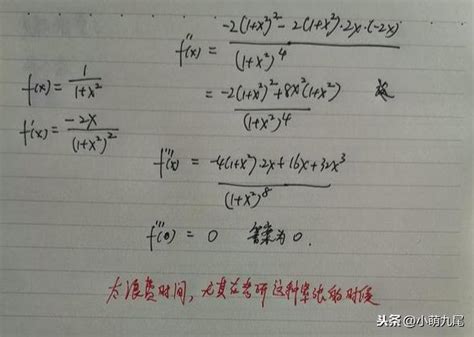 f(x) = 1/(1+x²)
f'(x) = -2x/(1+x²)²
f''(x) = (-2(1+x²)² - 2(1+x²)·2x·(-2x))/(1+x²)⁴
= (-2(1+x²)² + 8x²(1+x²))/(1+x²)⁴
f'''(x) = (-4(1+x²)·2x + 16x + 32x³)/(1+x²)⁸
f'''(0) = 0 答案为0.
太浪费时间,尤其在考研这种紧张的时候
头条@小萌九尾